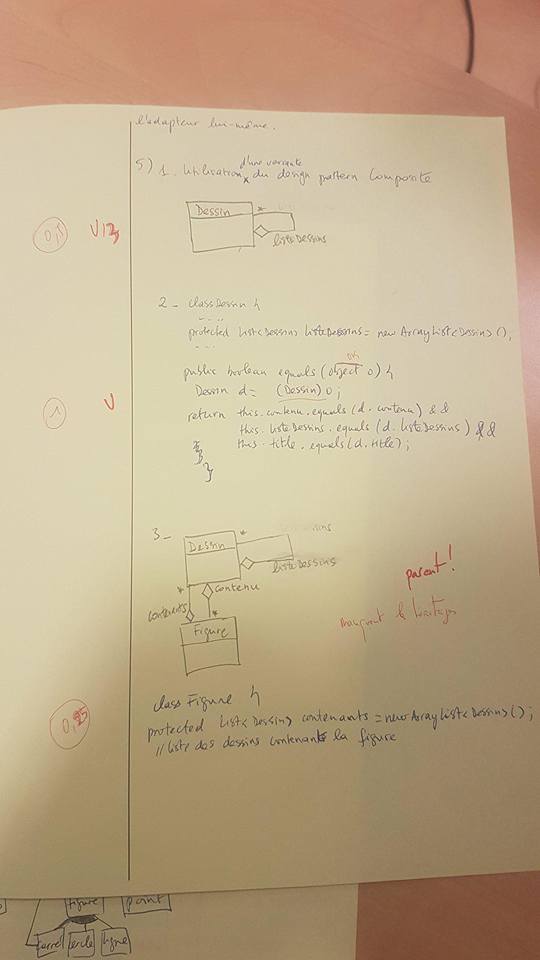 l'adapteur lui-même.
d'une variante
5) 1. Utilisation du design pattern Composite
Dessin *
0,5 V
listeDessins
2 - class Dessin {
.....
protected List<Dessin> listeDessins = new ArrayList<Dessin>();
...
OK
public boolean equals (Object o) {
Dessin d = (Dessin) o;
1 V
return this.contenu.equals (d.contenu) &&
this.listeDessins.equals (d.listeDessins) &&
this.title.equals (d.title);
}
}
3 -
*
Dessin
listeDessins
parent!
* contenu
contenants *
manquent
Figure
class Figure {
0,25
protected List<Dessin> contenants = new ArrayList<Dessin>();
// liste des dessins contenant la figure
figure point
cercle ligne